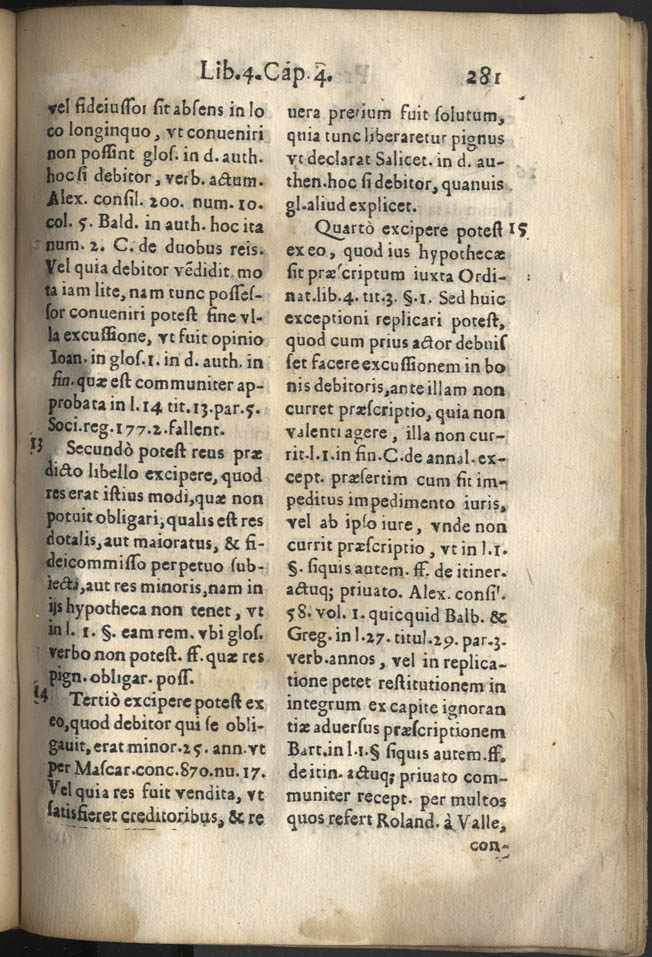 Lib.4.Cap.4.
281
vel fideiussor sit absens in lo
co longinquo, vt conueniri
non possint glos. in d. auth.
hoc si debitor, verb. actum.
Alex. consil. 200. num. 10.
col. 5. Bald. in auth. hoc ita
num. 2. C. de duobus reis.
Vel quia debitor vẽdidit mo
ta iam lite, nam tunc posses-
sor conueniri potest sine vl-
la excussione, vt fuit opinio
Ioan. in glos. 1. in d. auth. in
fin. quæ est communiter ap-
probata in l. 14 tit. 13. par. 5.
Soci. reg. 177. 2. fallent.
13
Secundò potest reus præ
dicto libello excipere, quod
res erat istius modi, quæ non
potuit obligari, qualis est res
dotalis, aut maioratus, & fi-
deicommisso perpetuo sub-
iecta, aut res minoris, nam in
ijs hypotheca non tenet, vt
in l. 1. §. eam rem. vbi glos.
verbo non potest. ff. quæ res
pign. obligar. poss.
14
Tertiò excipere potest ex
eo, quod debitor qui se obli-
gauit, erat minor. 25. ann. vt
per Mascar. conc. 870. nu. 17.
Vel quia res fuit vendita, vt
satisfieret creditoribus, & re
uera pretium fuit solutum,
quia tunc liberaretur pignus
vt declarat Salicet. in d. au-
then. hoc si debitor, quanuis
gl. aliud explicet.
Quartò excipere potest 15
ex eo, quod ius hypothecæ
sit præscriptum iuxta Ordi-
nat. lib. 4. tit. 3. §. 1. Sed huic
exceptioni replicari potest,
quod cum prius actor debuis
set facere excussionem in bo
nis debitoris, ante illam non
curret præscriptio, quia non
valenti agere, illa non cur-
rit. l. 1. in fin. C. de annal. ex-
cept. præsertim cum sit im-
peditus impedimento iuris,
vel ab ipso iure, vnde non
currit præscriptio, vt in l. 1.
§. siquis autem. ff. de itiner.
actuq; priuato. Alex. consil.
58. vol. 1. quicquid Balb. &
Greg. in l. 27. titul. 29. par. 3.
verb. annos, vel in replica-
tione petet restitutionem in
integrum ex capite ignoran
tiæ aduersus præscriptionem
Bart. in l. 1. § siquis autem. ff.
de itin. actuq; priuato com-
muniter recept. per multos
quos refert Roland. à Valle,
con-